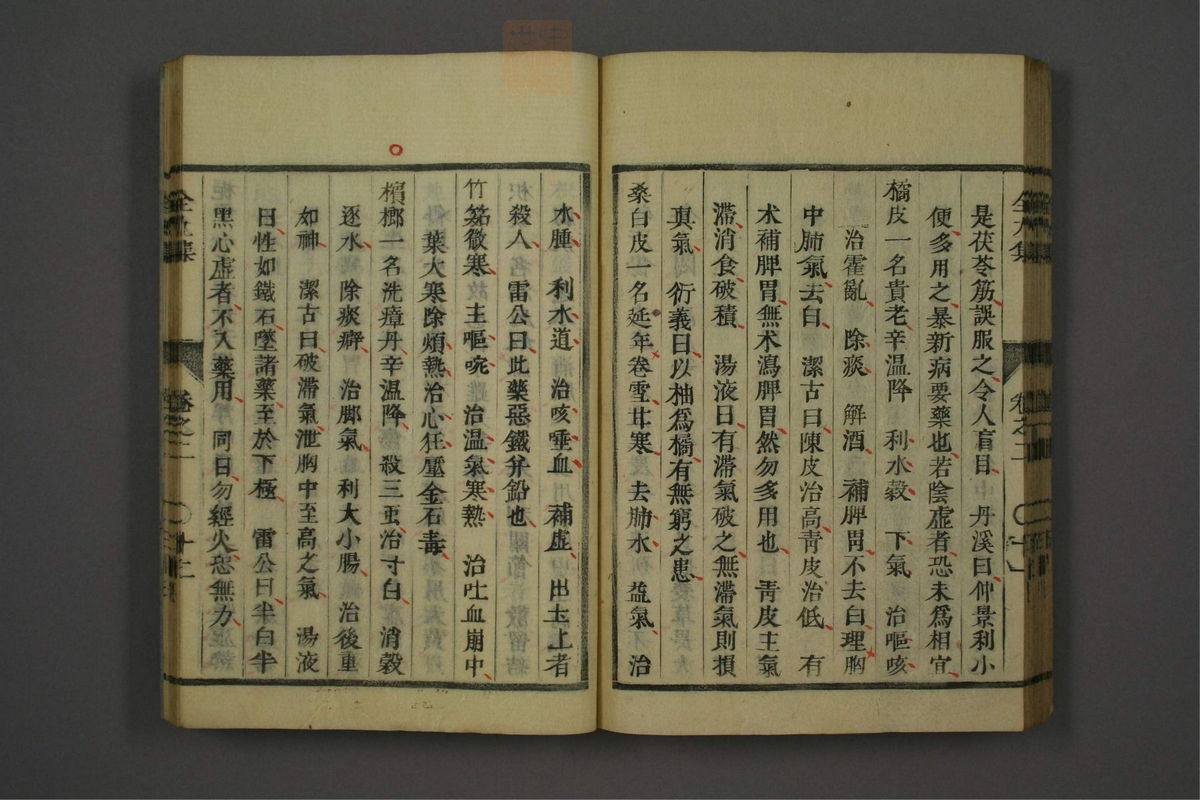 是茯苓筋誤服之令人盲目 丹溪曰仲景利小
便多用之暴新病要藥也若陰虛者恐未為相宜
橘皮一名貴老辛溫降 利水穀 下氣 治嘔咳
治霍亂 除痰 解酒 補脾胃不去白理胸
中肺氣去白 潔古曰陳皮治高靑皮治低 有
术補脾胃無术瀉脾胃然勿多用也 靑皮主氣
滯消食破積 湯液曰有滯氣破之無滯氣則損
眞氣 衍義曰以柚爲橘有無窮之患
桑白皮一名延年卷雪甘寒 去肺水 益氣 治
水腫 利水道 治咳唾血 補虛 出土上者
殺人 雷公曰此藥惡鐵幷鉛也
竹筎微寒 主嘔啘 治溫氣寒熱 治吐血崩中
葉大寒除煩熱治心狂壓金石毒
檳榔一名洗瘴丹辛溫降 殺三蟲治寸白 消穀
逐水 除痰癖 治脚氣 利大小腸 治後重
如神 潔古曰破滯氣泄胸中至高之氣 湯液
曰性如鐵石墜諸藥至於下極 雷公曰半白半
黑心虛者不入藥用 同曰勿經火恐無力
卷之二